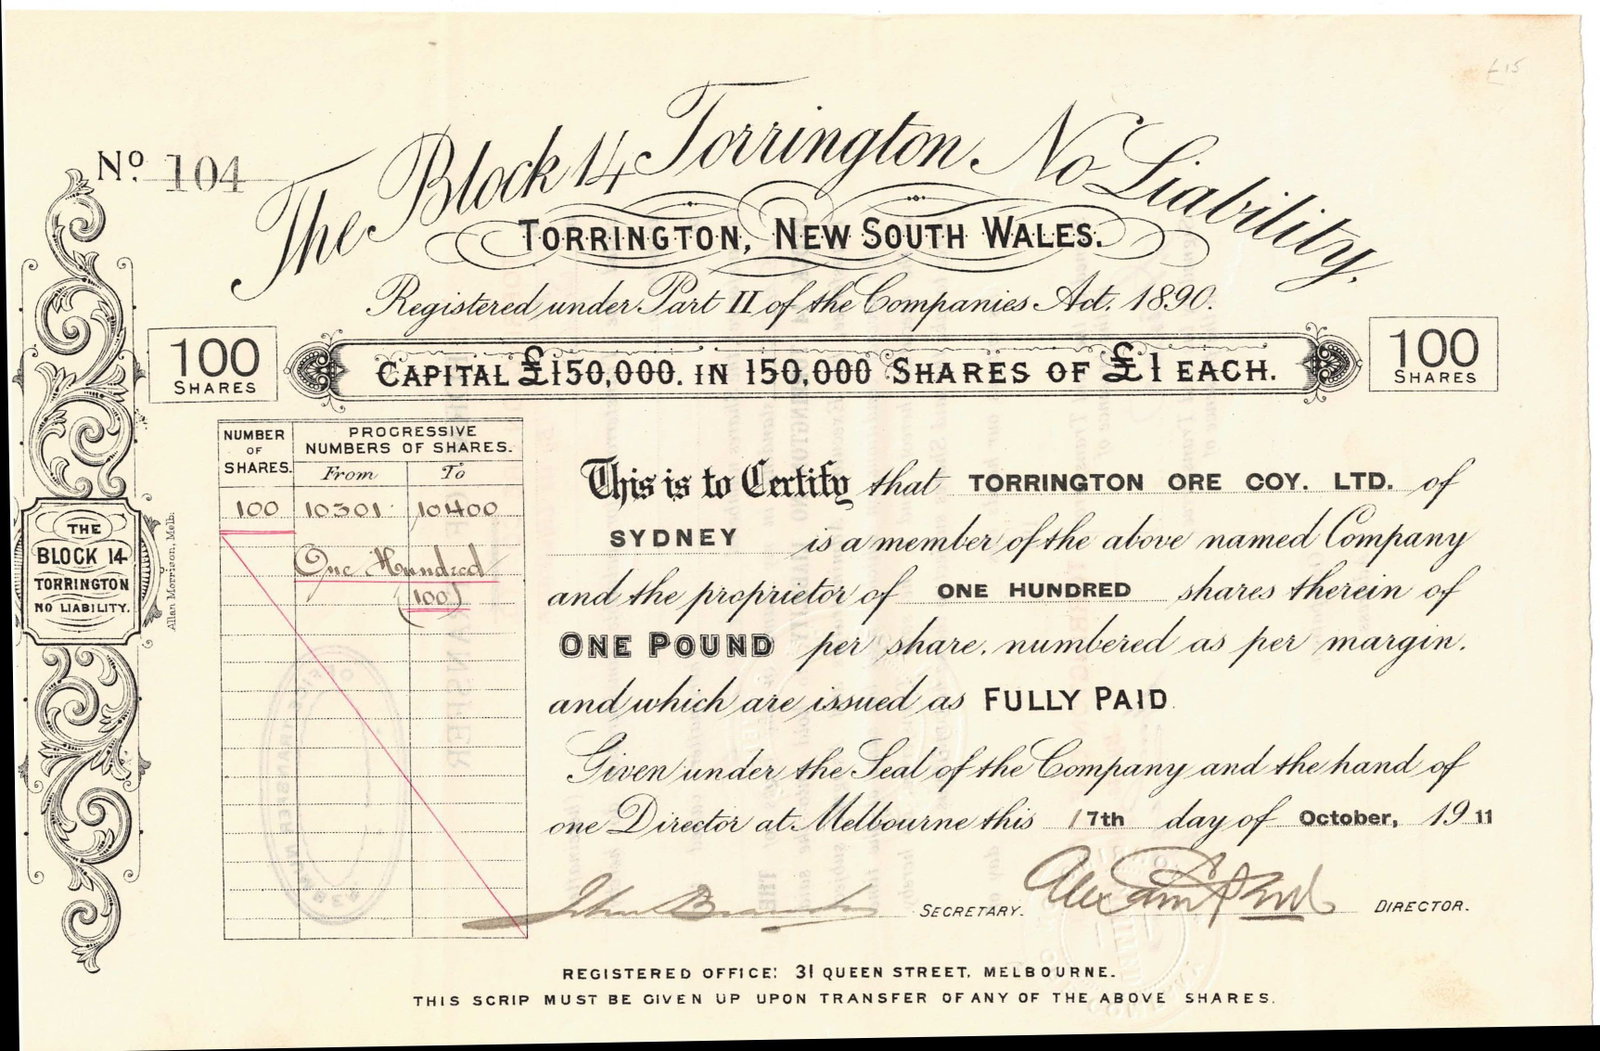 £15
No. 104
The Block 14 Torrington No Liability,
TORRINGTON, NEW SOUTH WALES.
Registered under Part II of the Companies Act. 1890.
100 SHARES
CAPITAL £150,000. IN 150,000 SHARES OF £1 EACH.
100 SHARES
NUMBER OF SHARES.
PROGRESSIVE NUMBERS OF SHARES.
From To
100 10301 10400
One Hundred
(100)
THE
BLOCK 14
TORRINGTON
NO LIABILITY.
Allan Morrison, Melb.
This is to Certify that TORRINGTON ORE COY. LTD. of
SYDNEY is a member of the above named Company
and the proprietor of ONE HUNDRED shares therein of
ONE POUND per share, numbered as per margin,
and which are issued as FULLY PAID
Given under the Seal of the Company and the hand of
one Director at Melbourne this 17th day of October, 1911
John SECRETARY. DIRECTOR.
REGISTERED OFFICE: 31 QUEEN STREET, MELBOURNE.
THIS SCRIP MUST BE GIVEN UP UPON TRANSFER OF ANY OF THE ABOVE SHARES.